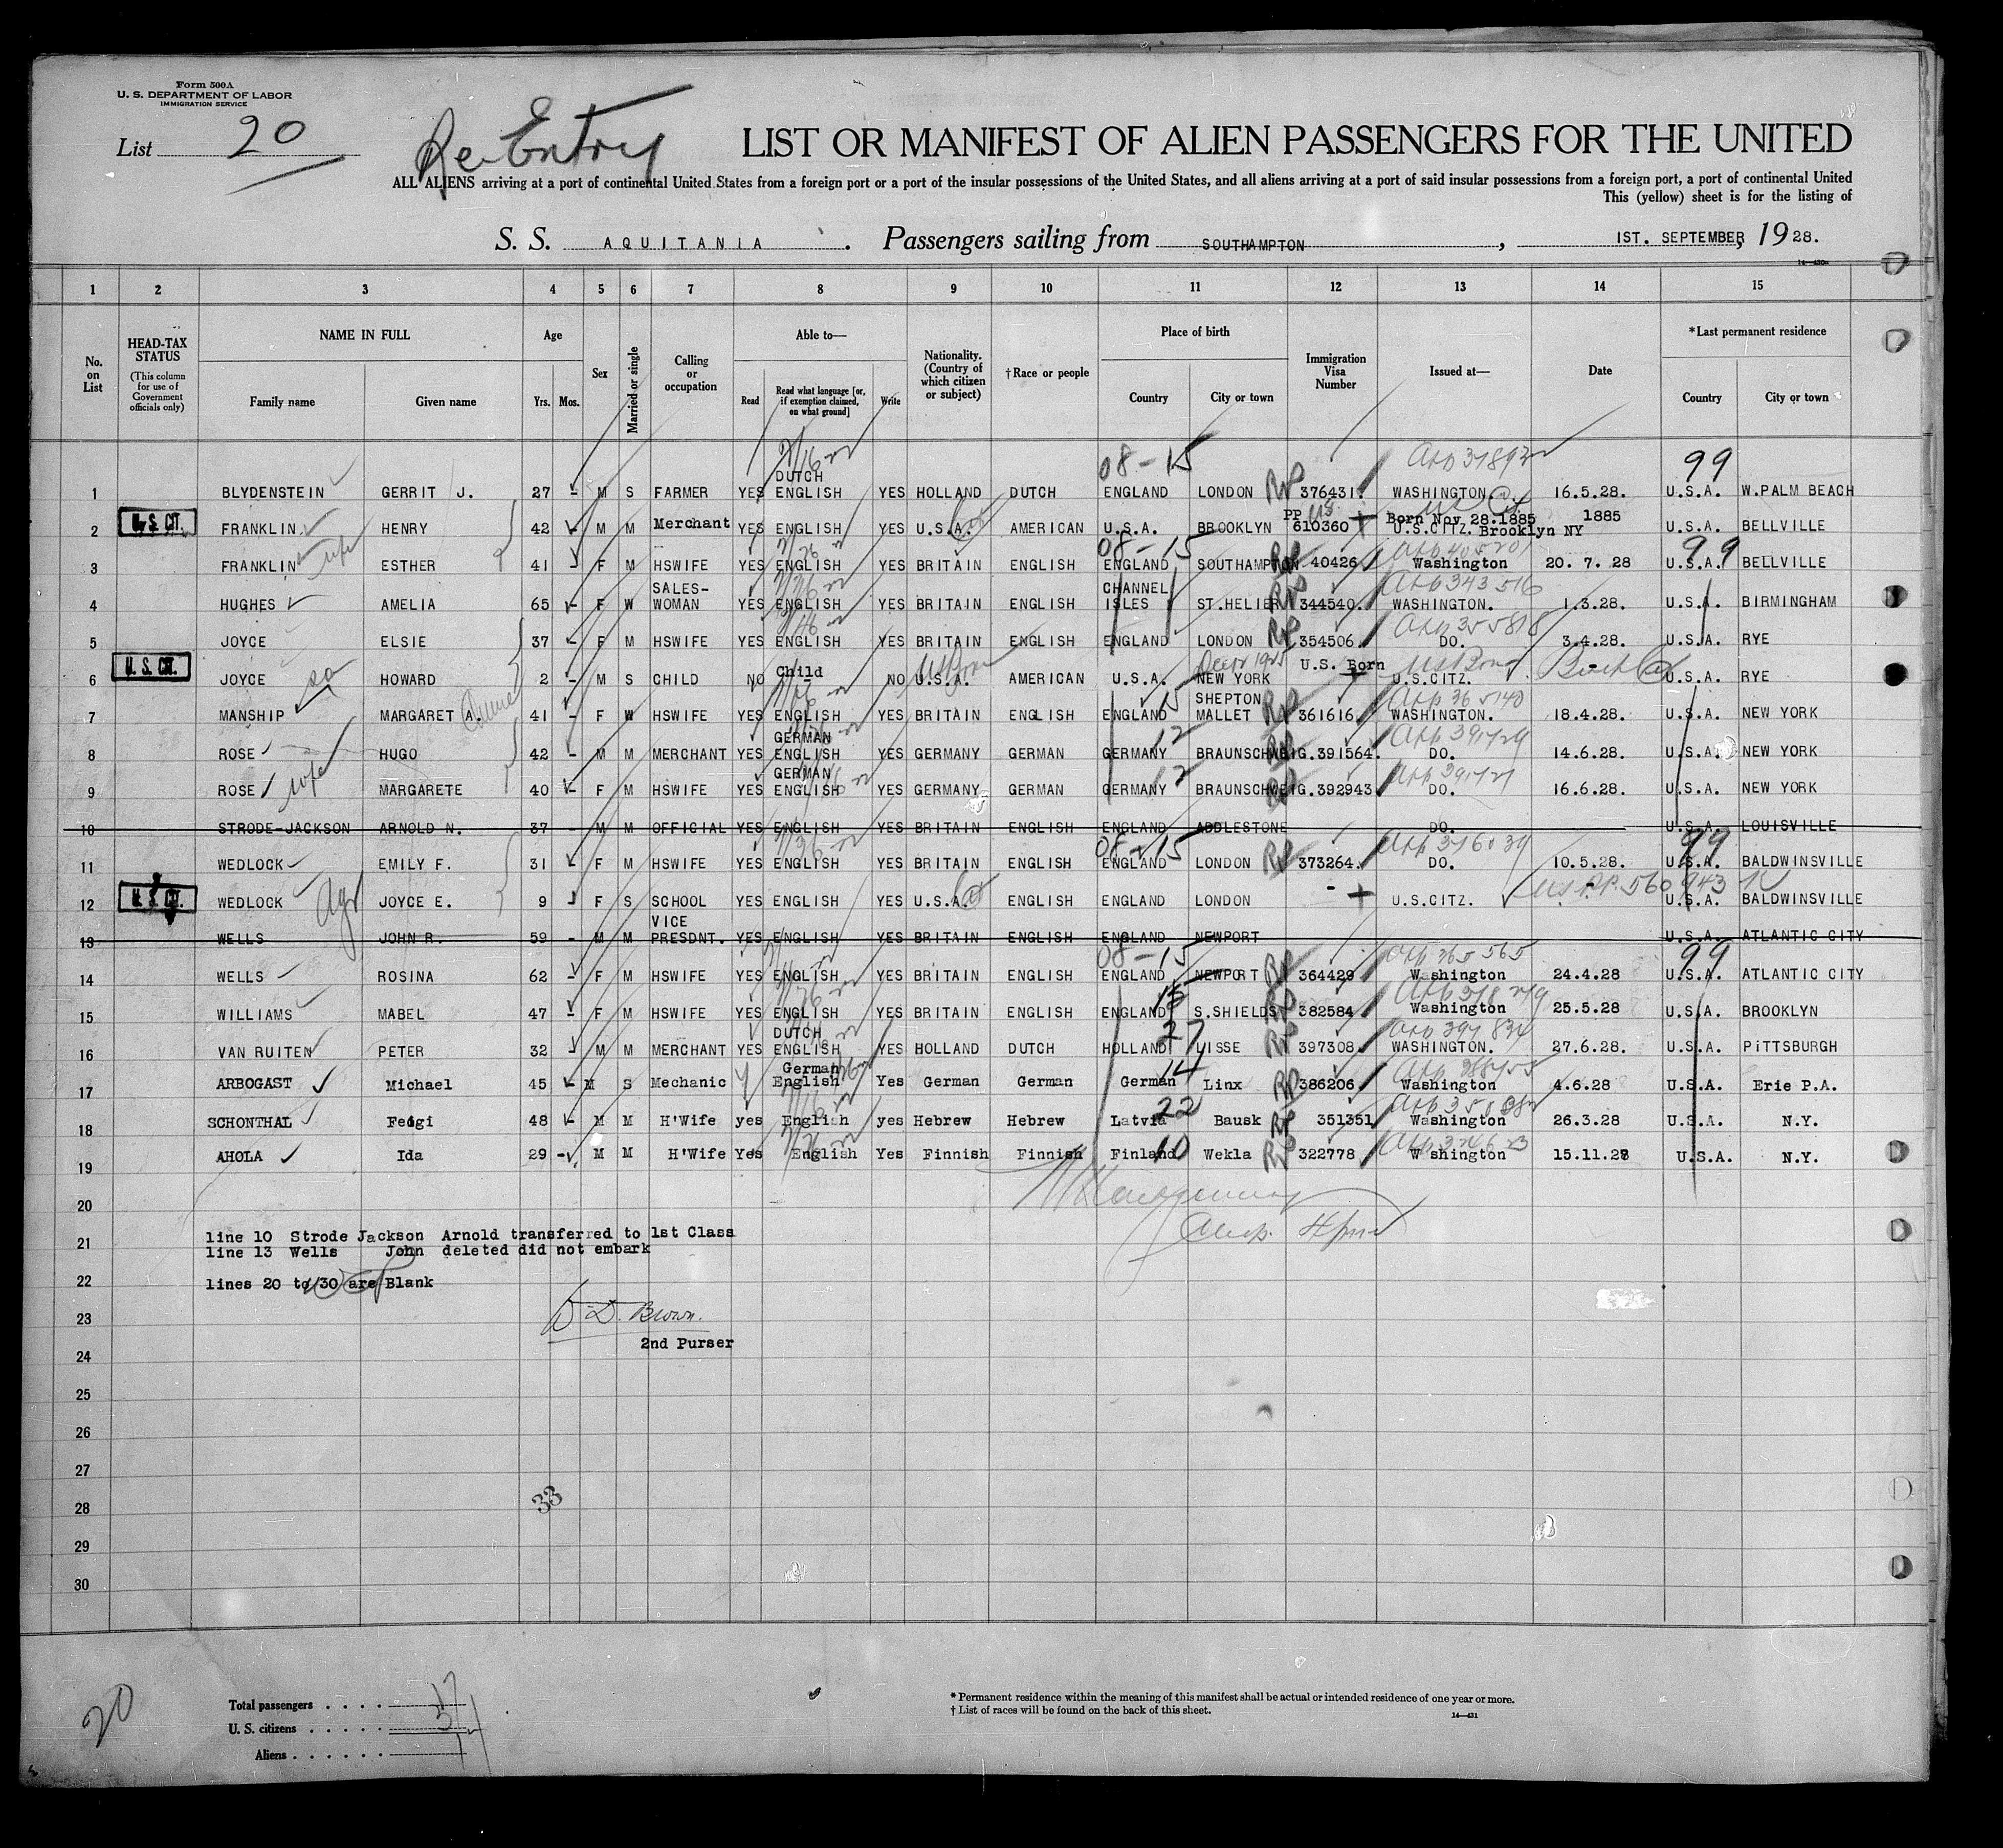 Form 500A
U. S. DEPARTMENT OF LABOR
IMMIGRATION SERVICE
List 20
Re-Entry
LIST OR MANIFEST OF ALIEN PASSENGERS FOR THE UNITED
ALL ALIENS arriving at a port of continental United States from a foreign port or a port of the insular possessions of the United States, and all aliens arriving at a port of said insular possessions from a foreign port, a port of continental United
This (yellow) sheet is for the listing of
S. S. AQUITANIA. Passengers sailing from SOUTHAMPTON, 1ST. SEPTEMBER, 1928.
1 2 3 4 5 6 7 8 9 10 11 12 13 14 15
No. on List
HEAD-TAX STATUS
(This column for use of Government officials only)
NAME IN FULL
Family name Given name
Age
Yrs. Mos.
Sex
Married or single
Calling or occupation
Able to—
Read
Read what language [or, if exemption claimed, on what ground]
Write
Nationality. (Country of which citizen or subject)
†Race or people
Place of birth
Country City or town
Immigration Visa Number
Issued at—
Date
*Last permanent residence
Country City or town
08-15 99
DUTCH
1 BLYDENSTEIN GERRIT J. 27 - M S FARMER YES ENGLISH YES HOLLAND DUTCH ENGLAND LONDON 376431. WASHINGTON. 16.5.28. U.S.A. W.PALM BEACH
PP Born Nov 28.1885 1885
2 U. S. CIT. FRANKLIN. HENRY 42 - M M Merchant YES ENGLISH YES U.S.A. AMERICAN U.S.A. BROOKLYN 610360 U.S.CITZ. Brooklyn NY U.S.A. BELLVILLE
08-15 99
3 FRANKLIN wife ESTHER 41 F M HSWIFE YES ENGLISH YES BRITAIN ENGLISH ENGLAND SOUTHAMPTON. 40426 Washington 20. 7. 28 U.S.A. BELLVILLE
SALES- CHANNEL
4 HUGHES AMELIA 65 - F W WOMAN YES ENGLISH YES BRITAIN ENGLISH ISLES ST.HELIER 344540. WASHINGTON. 1.3.28. U.S.A. BIRMINGHAM
5 JOYCE ELSIE 37 - F M HSWIFE YES ENGLISH YES BRITAIN ENGLISH ENGLAND LONDON 354506. DO. 3.4.28. U.S.A. RYE
Child U.S. Born
6 U. S. CIT. JOYCE HOWARD 2 - M S CHILD NO NO U.S.A. AMERICAN U.S.A. NEW YORK U.S.CITZ. U.S.A. RYE
SHEPTON
7 MANSHIP MARGARET A. 41 - F W HSWIFE YES ENGLISH YES BRITAIN ENGLISH ENGLAND MALLET 361616. WASHINGTON. 18.4.28. U.S.A. NEW YORK
GERMAN 12
8 ROSE HUGO 42 - M M MERCHANT YES ENGLISH YES GERMANY GERMAN GERMANY BRAUNSCHWEIG. 391564. DO. 14.6.28. U.S.A. NEW YORK
GERMAN 12
9 ROSE wife MARGARETE 40 - F M HSWIFE YES ENGLISH YES GERMANY GERMAN GERMANY BRAUNSCHWEIG. 392943. DO. 16.6.28. U.S.A. NEW YORK
10 STRODE-JACKSON ARNOLD N. 37 - M M OFFICIAL YES ENGLISH YES BRITAIN ENGLISH ENGLAND ADDLESTONE DO. U.S.A. LOUISVILLE
08-15 99
11 WEDLOCK EMILY F. 31 F M HSWIFE YES ENGLISH YES BRITAIN ENGLISH ENGLAND LONDON 373264. DO. 10.5.28. U.S.A. BALDWINSVILLE
12 U. S. CIT. WEDLOCK JOYCE E. 9 F S SCHOOL YES ENGLISH YES U.S.A. ENGLISH ENGLAND LONDON - U.S.CITZ. U.S.A. BALDWINSVILLE
VICE
13 WELLS JOHN R. 59 - M M PRESDNT. YES ENGLISH YES BRITAIN ENGLISH ENGLAND NEWPORT U.S.A. ATLANTIC CITY
08-15 99
14 WELLS ROSINA 62 - F M HSWIFE YES ENGLISH YES BRITAIN ENGLISH ENGLAND NEWPORT 364429 Washington 24.4.28 U.S.A. ATLANTIC CITY
15
15 WILLIAMS MABEL 47 - F M HSWIFE YES ENGLISH YES BRITAIN ENGLISH ENGLAND S.SHIELDS 382584 Washington 25.5.28 U.S.A. BROOKLYN
DUTCH 27
16 VAN RUITEN PETER 32 M M MERCHANT YES ENGLISH YES HOLLAND DUTCH HOLLAND LISSE 397308. WASHINGTON. 27.6.28. U.S.A. PITTSBURGH
German 14
17 ARBOGAST Michael 45 - M S Mechanic English Yes German German German Linx 386206 Washington 4.6.28 U.S.A. Erie P.A.
22
18 SCHONTHAL Feigi 48 - M M H'Wife yes English yes Hebrew Hebrew Latvia Bausk 351351 Washington 26.3.28 U.S.A. N.Y.
10
19 AHOLA Ida 29 - M M H'Wife Yes English Yes Finnish Finnish Finland Wekla 322778 W shington 15.11.28 U.S.A. N.Y.
20
21 line 10 Strode Jackson Arnold transferred to 1st Class
line 13 Wells John deleted did not embark
22 lines 20 to 30 are Blank
23 D. Brown.
2nd Purser
24
25
26
27
28 33
29
30
20
Total passengers 17
U. S. citizens 3
Aliens 14
* Permanent residence within the meaning of this manifest shall be actual or intended residence of one year or more.
† List of races will be found on the back of this sheet.
14—431